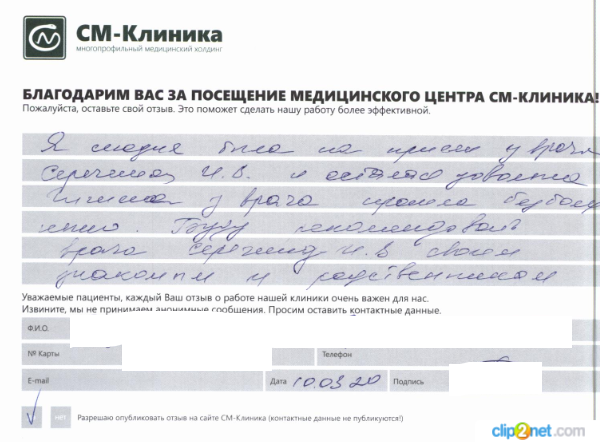 СМ-Клиника
многопрофильный медицинский холдинг
БЛАГОДАРИМ ВАС ЗА ПОСЕЩЕНИЕ МЕДИЦИНСКОГО ЦЕНТРА СМ-КЛИНИКА!
Пожалуйста, оставьте свой отзыв. Это поможет сделать нашу работу более эффективной.
Я сегодня была на приеме у врача
И.В. и осталась довольна
у врача прошла безболез
ненно. Буду рекомендовать
врача И.В своим
знакомым и родственникам
Уважаемые пациенты, каждый Ваш отзыв о работе нашей клиники очень важен для нас.
Извините, мы не принимаем анонимные сообщения. Просим оставить контактные данные.
Ф.И.О.
№ Карты Телефон
E-mail Дата 10.03.20 Подпись
НЕТ Разрешаю опубликовать отзыв на сайте СМ-Клиника (контактные данные не публикуются!)
clip2net.com